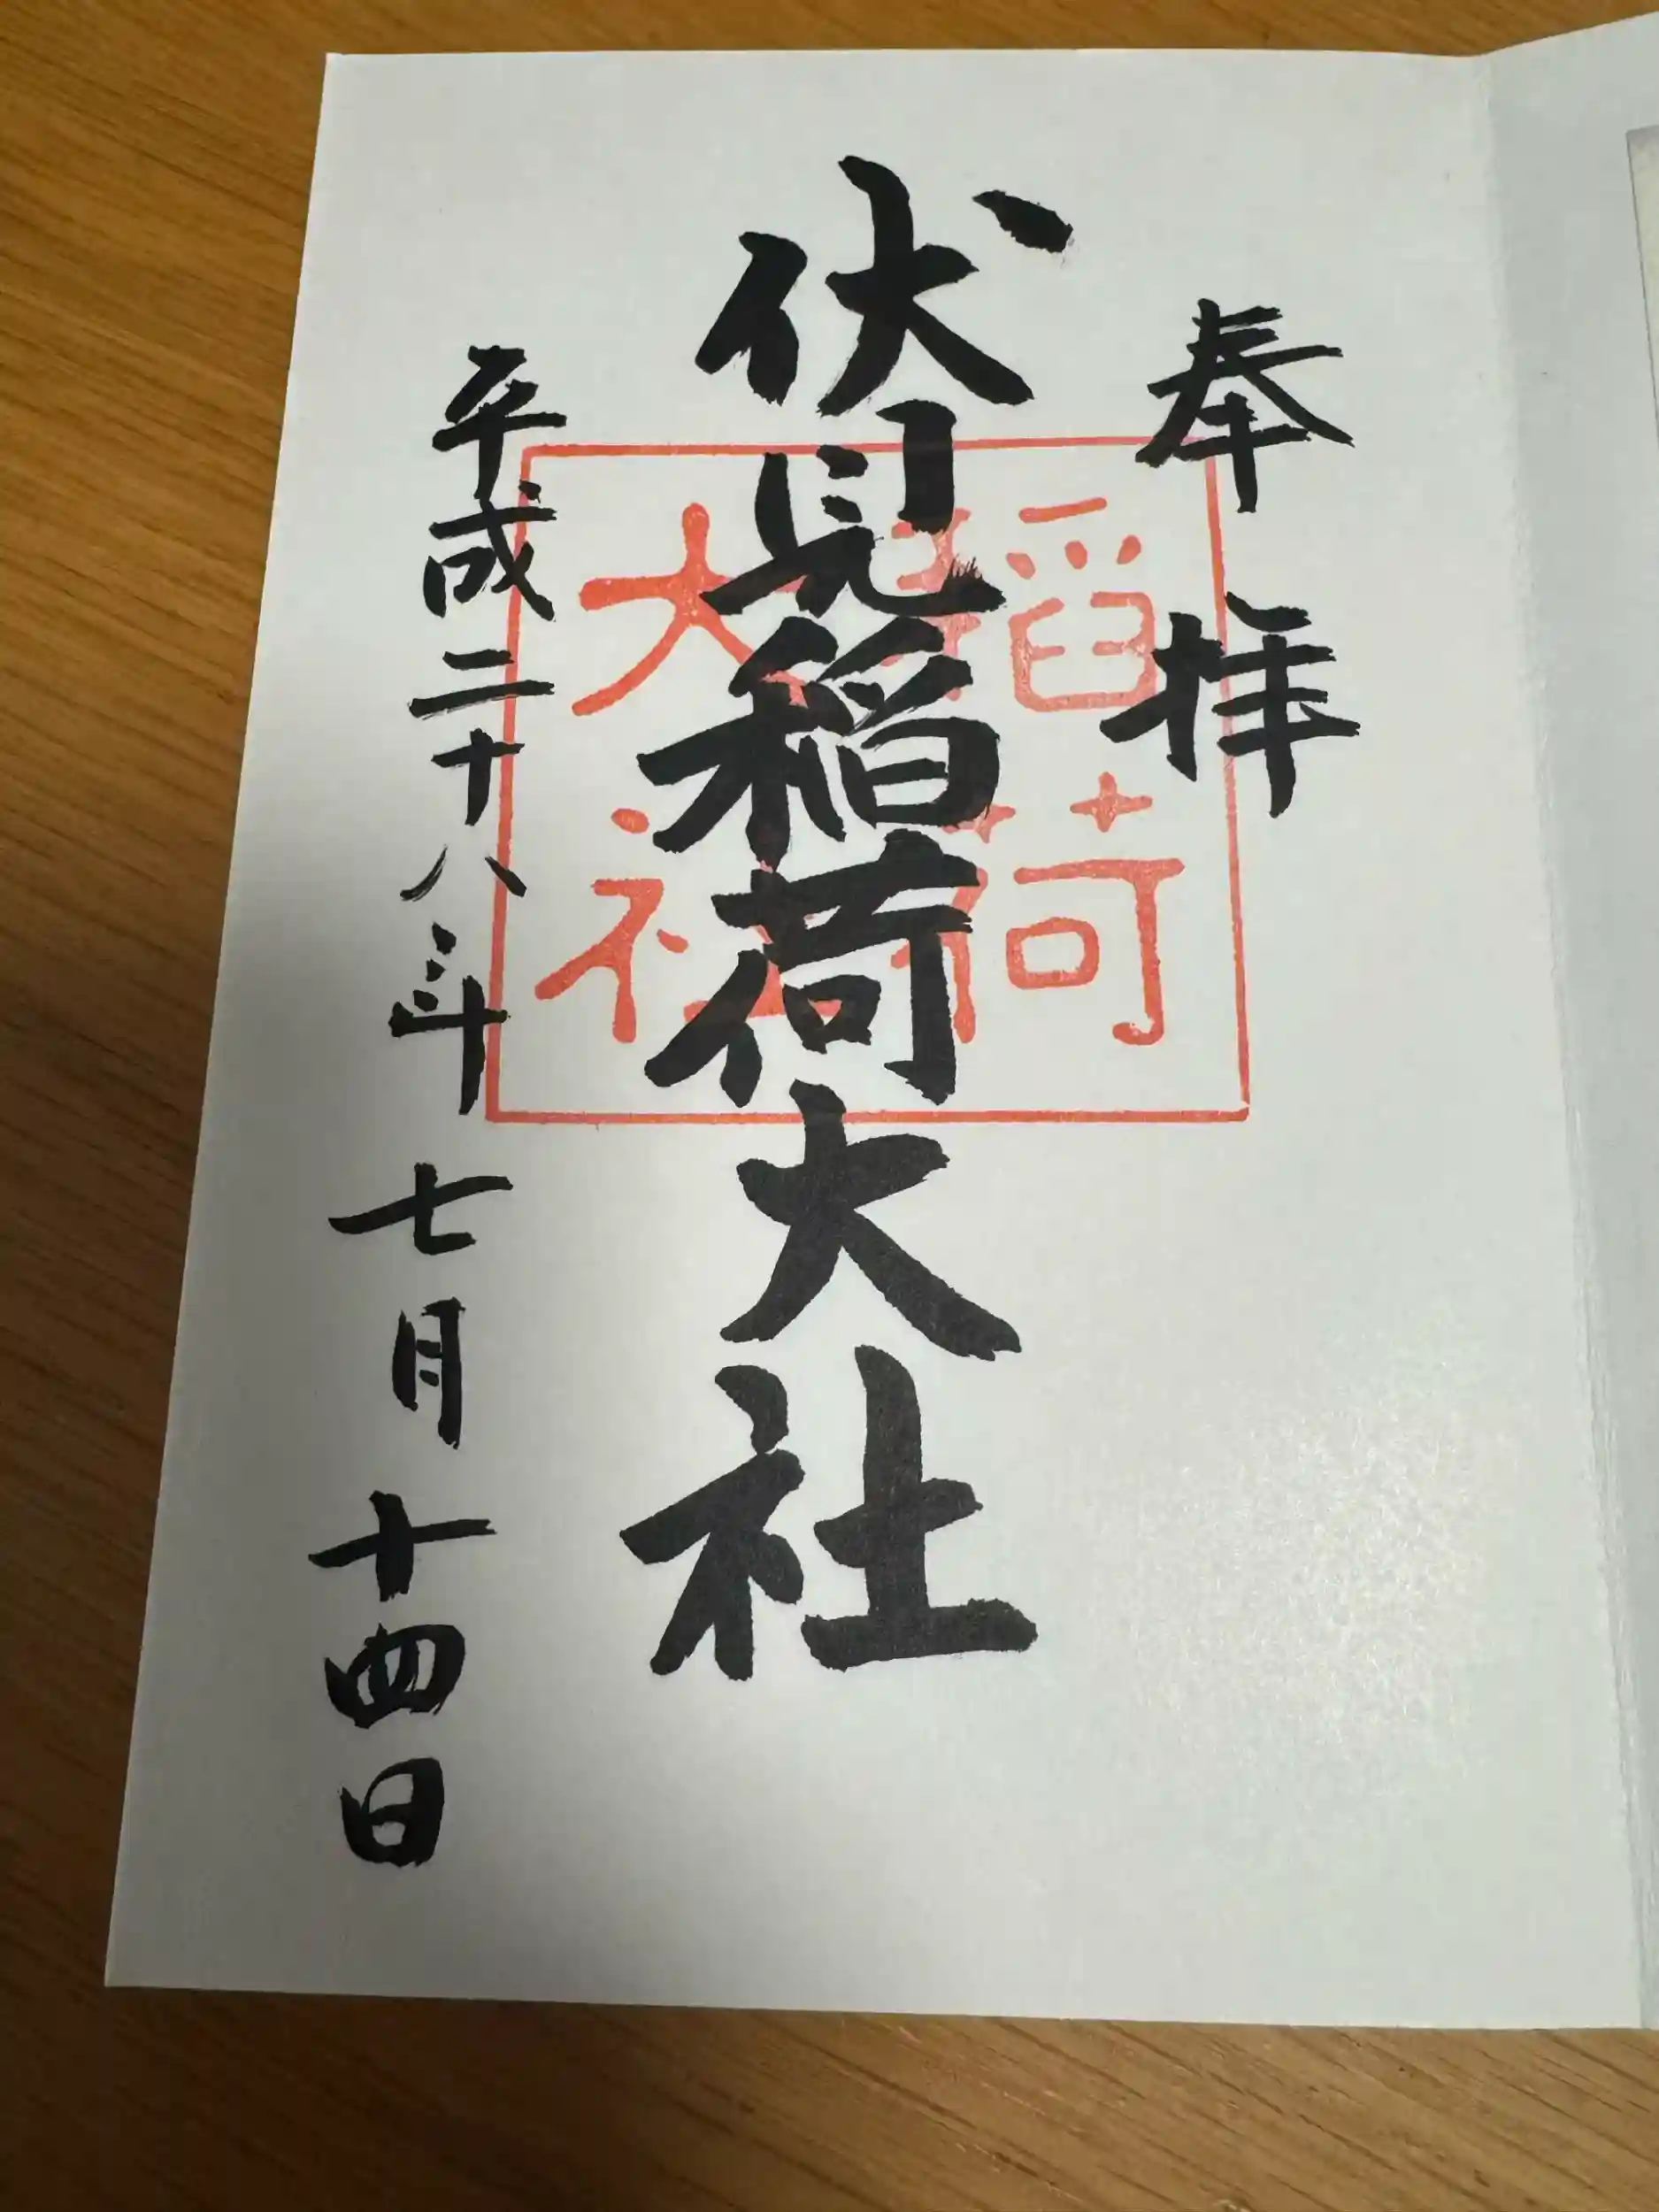 奉拝
伏見稲荷大社
稲荷
大社
平成二十八年 七月十四日